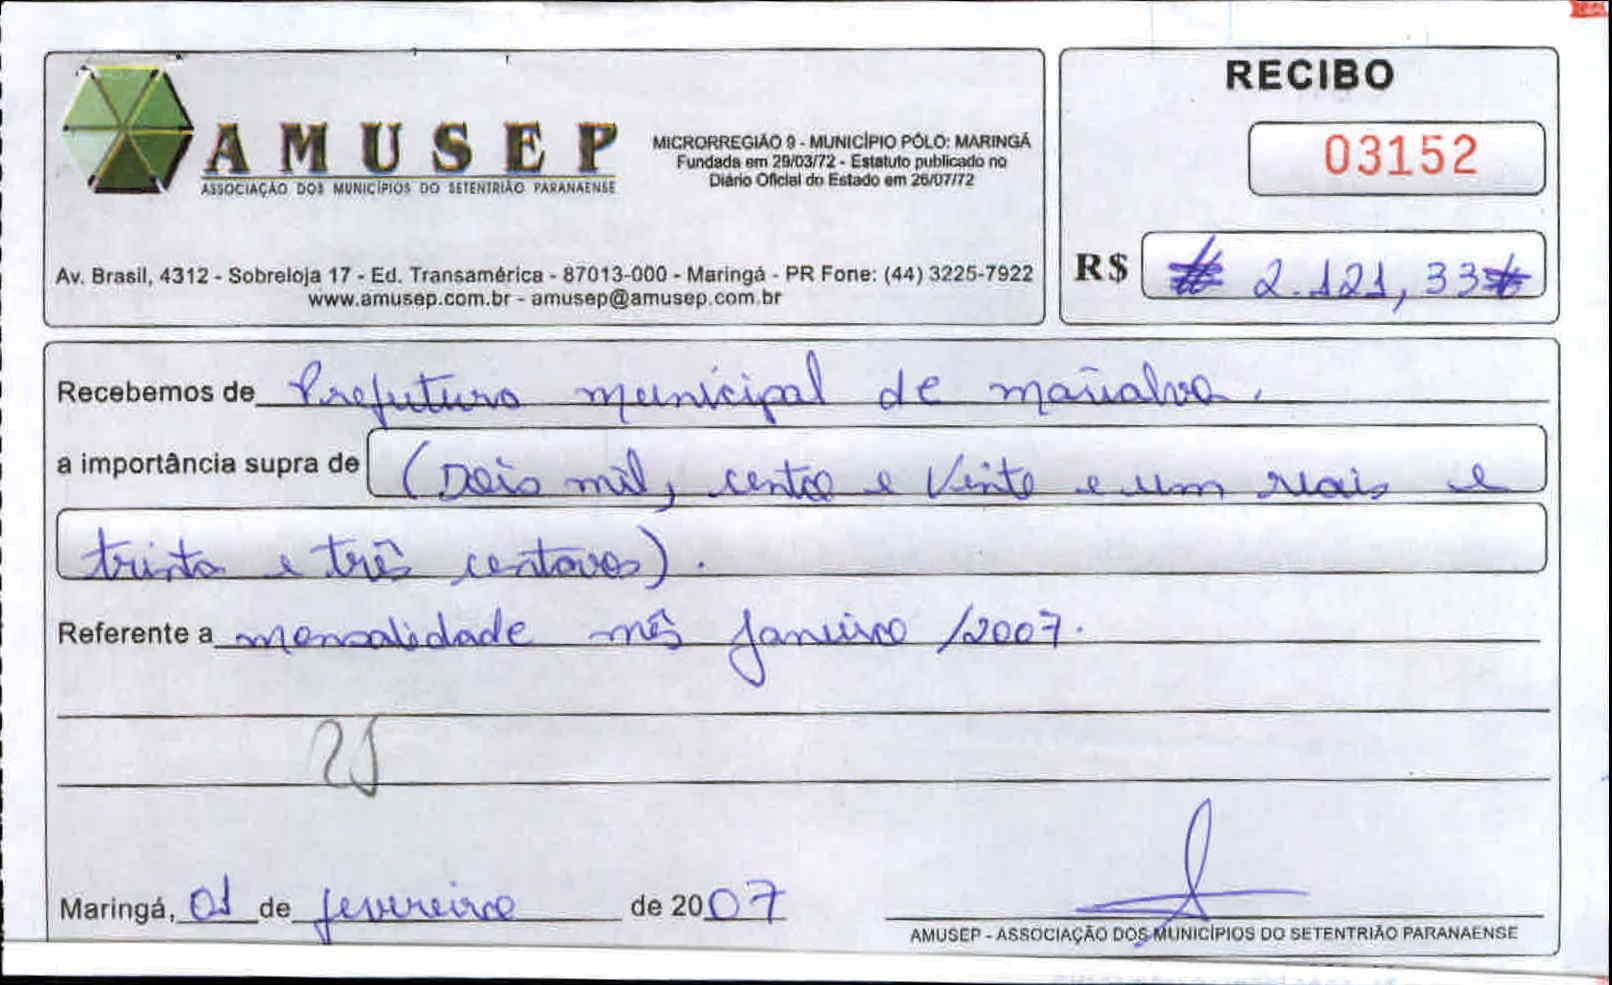 AMUSEP
ASSOCIAÇÃO DOS MUNICÍPIOS DO SETENTRIÃO PARANAENSE
MICRORREGIÃO 9 - MUNICÍPIO PÓLO: MARINGÁ
Fundada em 29/03/72 - Estatuto publicado no
Diário Oficial do Estado em 26/07/72
Av. Brasil, 4312 - Sobreloja 17 - Ed. Transamérica - 87013-000 - Maringá - PR Fone: (44) 3225-7922
www.amusep.com.br - amusep@amusep.com.br
RECIBO
03152
R$ # 2.121,33 #
Recebemos de Prefeitura municipal de marialva.
a importância supra de (Dois mil, cento e Vinte e um reais e
trinta e três centavos).
Referente a mensalidade mês Janeiro /2007.
Maringá, 01 de fevereiro de 2007
AMUSEP - ASSOCIAÇÃO DOS MUNICÍPIOS DO SETENTRIÃO PARANAENSE